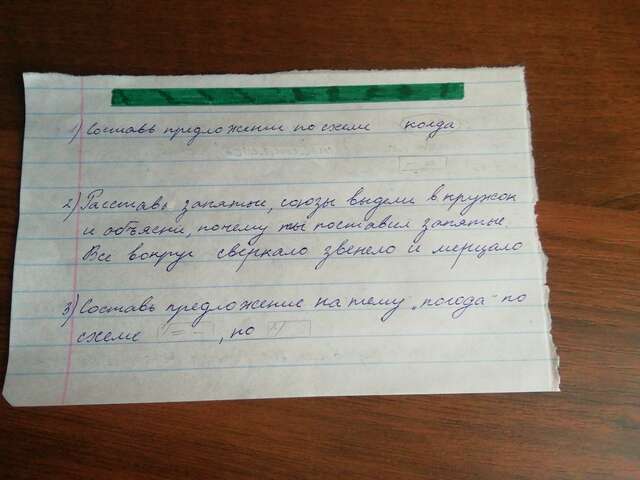 1) Составь предложение по схеме когда
2) Расставь запятые, союзы выдели в кружок
и объясни, почему ты поставил запятые.
Всё вокруг сверкало звенело и мерцало
3) Составь предложение на тему „погода“ по
схеме , но